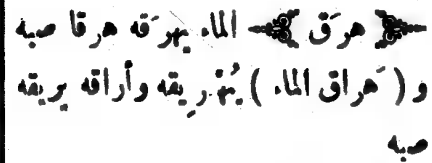 هرَق الماء يهرَقه هرقا صبه
و ( هَراق الماء ) يُهَرِيقه وأراقه يريقه
صبه